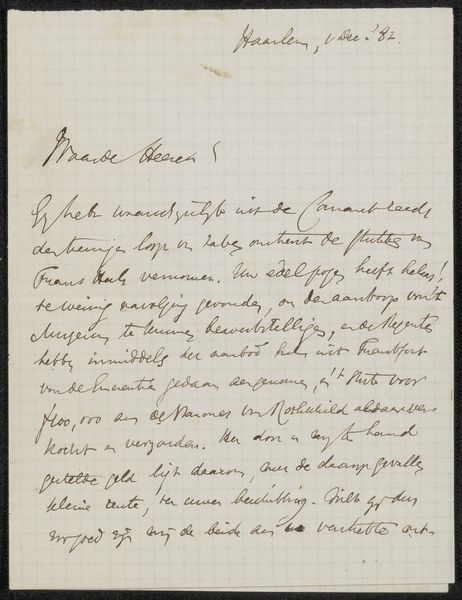 Haarlem, 1 Dec. '82.
Waarde Heeren!
Gij hebt waarschijnlijk uit de Courant reeds
den treurigen loop der zaken omtrent de stukken van
Frans Hals vernomen. Uw edel pogen heeft helaas!
te weinig navolging gevonden, om den aankoop van 't
te kunnen bewerkstelligen, en de Regenten
hebben inmiddels het aanbod hun uit Frankfort
gedaan aangenomen, 't stuk voor
ƒ100,000 aan de Barones von Rothschild aldaar ver-
kocht en verzonden. Het door u mij ter hand
gestelde geld ligt daarom, met de daarop gevallen
kleine rente, ter uwer beschikking. Wilt gij dus
zoo goed zijn mij de beide aan u verstrekte ont-